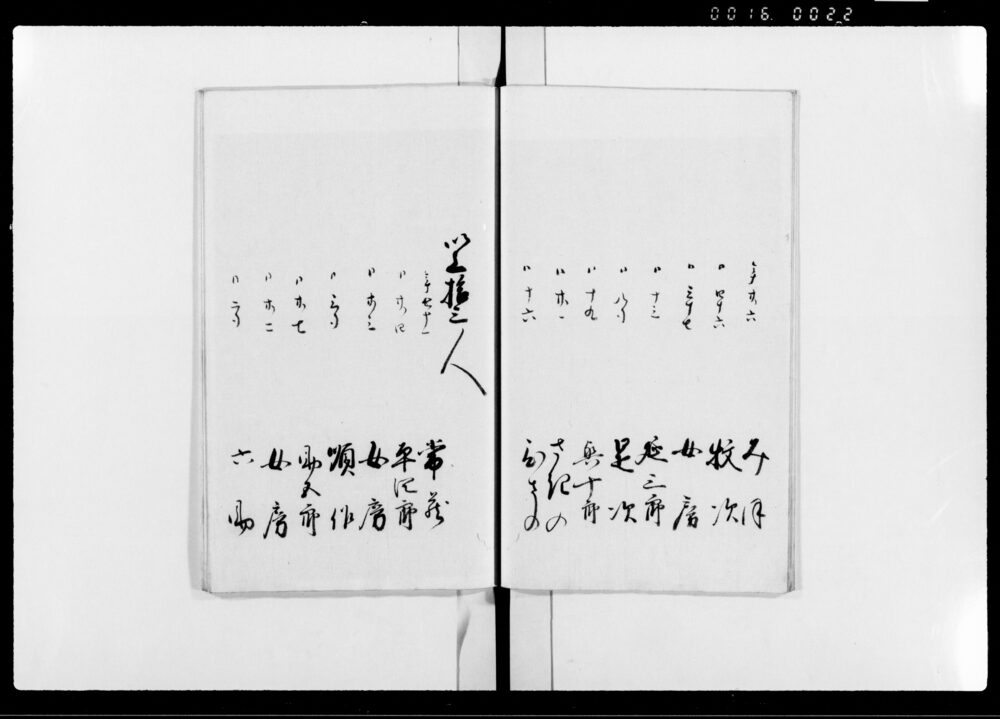 0016 0022
年廿六 み津
〃 四十六 牧次
〃 三十七 女房
〃 十三 延三郎
〃 八才 是次
〃 十九 與十郎
〃 廿一 さだの
〃 十六
〆拾三人
年七十一 常蔵
〃 廿四 郎
〃 廿三 女房
〃 三才 順作
〃 廿七 助五郎
〃 廿二 女房
〃 二才 六助